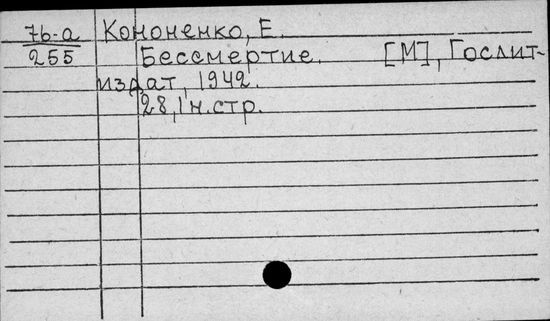 7b-a Кононенко, Е.
255 Бессмертие. [М], Гослит-
издат, 1942.
28, 1 н. стр.